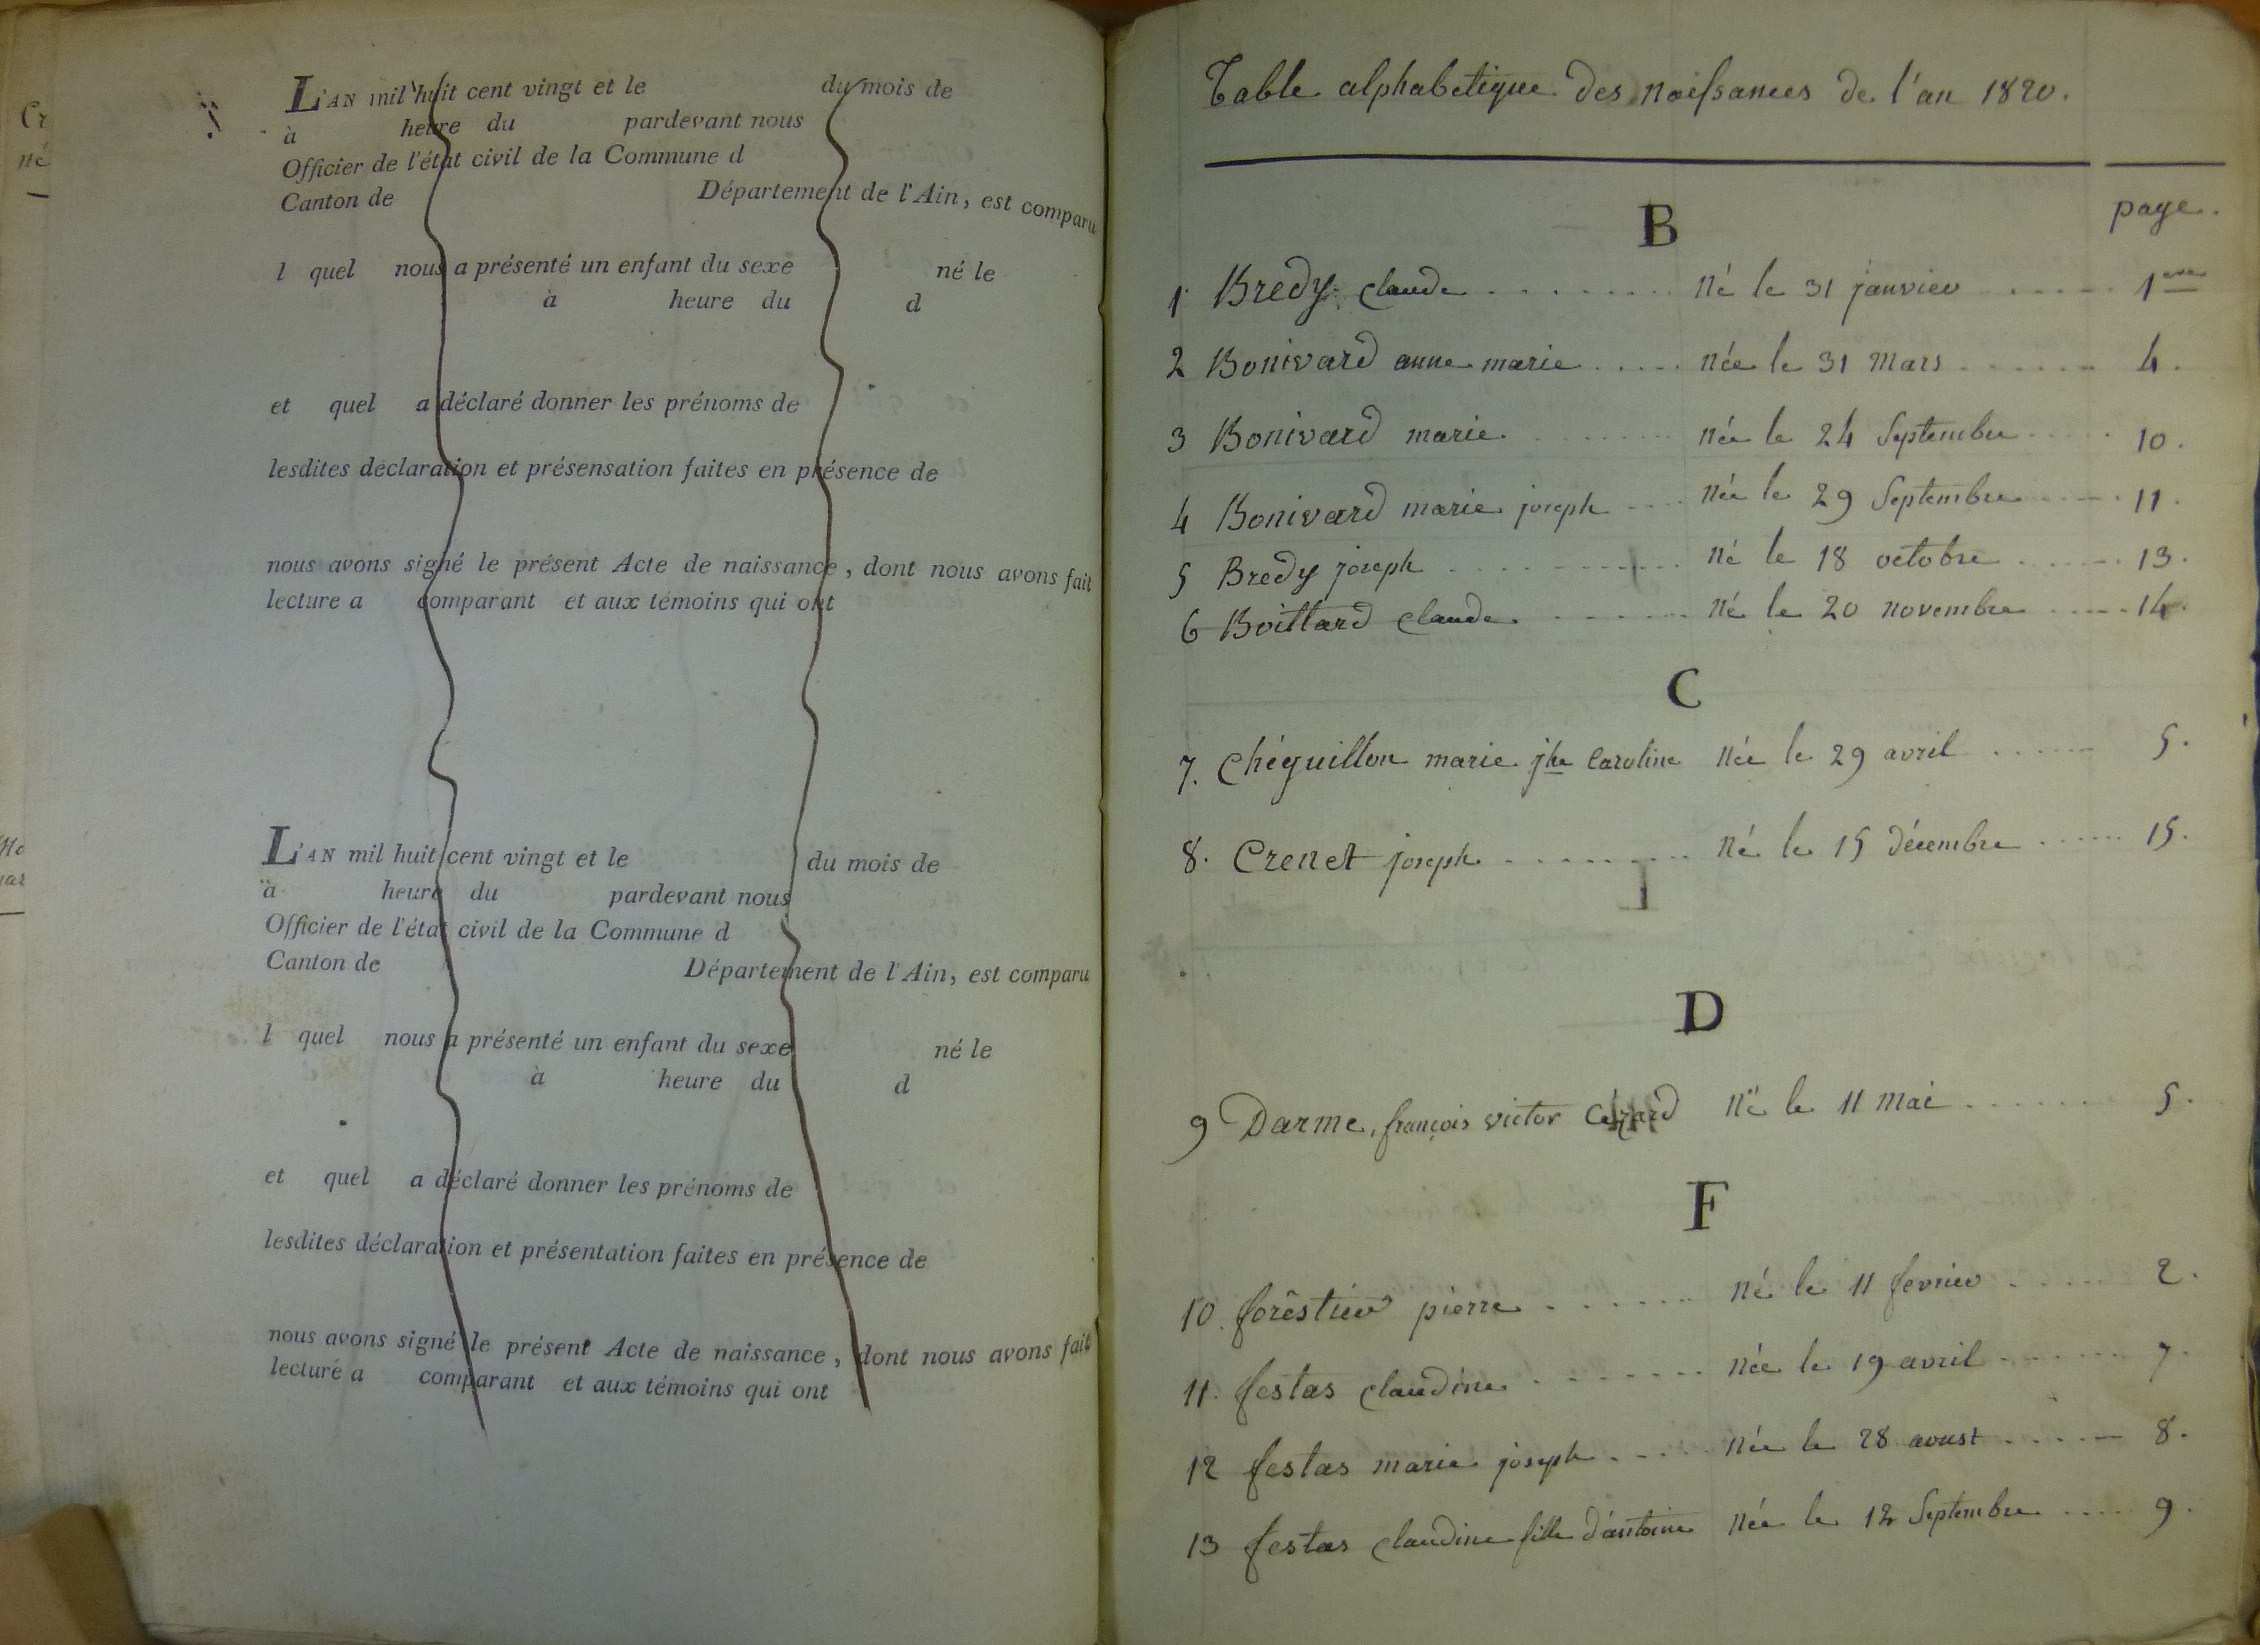 Cr
né
L'AN mil huit cent vingt et le du mois de
à heure du pardevant nous
Officier de l'état civil de la Commune d
Canton de Département de l'Ain, est comparu
l quel nous a présenté un enfant du sexe né le
à heure du d
et quel a déclaré donner les prénoms de
lesdites déclaration et présensation faites en présence de
nous avons signé le présent Acte de naissance, dont nous avons fait
lecture a comparant et aux témoins qui ont
L'AN mil huit cent vingt et le du mois de
à heure du pardevant nous
Officier de l'état civil de la Commune d
Canton de Département de l'Ain, est comparu
l quel nous a présenté un enfant du sexe né le
à heure du d
et quel a déclaré donner les prénoms de
lesdites déclaration et présentation faites en présence de
nous avons signé le présent Acte de naissance, dont nous avons fait
lecture a comparant et aux témoins qui ont
Table alphabetique des Naissances de l'an 1820.
page.
B
1 Bredy claude né le 31 janvier 1ere
2 Bonivard anne marie née le 31 Mars 4.
3 Bonivard marie née le 24 Septembre 10.
4 Bonivard marie joseph née le 29 Septembre 11.
5 Bredy joseph né le 18 octobre 13.
6 Boittard claude né le 20 novembre 14.
C
7. Chéguillon marie jhe Caroline née le 29 avril 5.
8. Crenet joseph né le 15 décembre 15.
D
9 Darme, françois victor Cézard né le 11 mai 5.
F
10. forêstier pierre né le 11 fevrier 2.
11. festas claudine née le 19 avril 7.
12 festas marie joseph née le 28 aoust 8.
13 festas claudine fille d'antoine née le 12 Septembre 9.